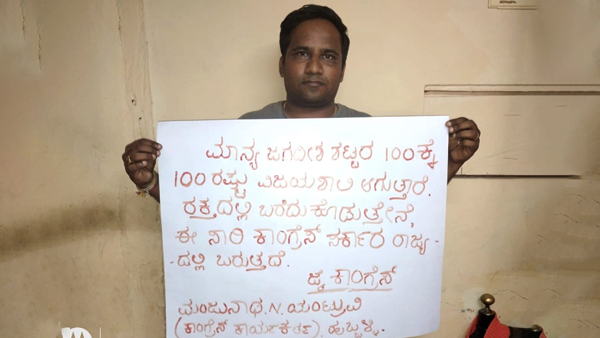 ಮಾನ್ಯ ಜಗದೀಶ ಶಟ್ಟರ 100ಕ್ಕೆ
100 ರಷ್ಟು ವಿಜಯಶಾಲಿ ಆಗುತ್ತಾರೆ.
ರಕ್ತದಲ್ಲಿ ಬರೆದುಕೊಡುತ್ತೇನೆ,
ಈ ಸಾರಿ ಕಾಂಗ್ರೆಸ್ ಸರ್ಕಾರ ರಾಜ್ಯ-
-ದಲ್ಲಿ ಬರುತ್ತದೆ.
ಜೈ ಕಾಂಗ್ರೆಸ್
ಮಂಜುನಾಥ.N. ಯಂಟ್ರುವಿ
(ಕಾಂಗ್ರೆಸ್ ಕಾರ್ಯಕರ್ತ), ಹುಬ್ಬಳ್ಳಿ.